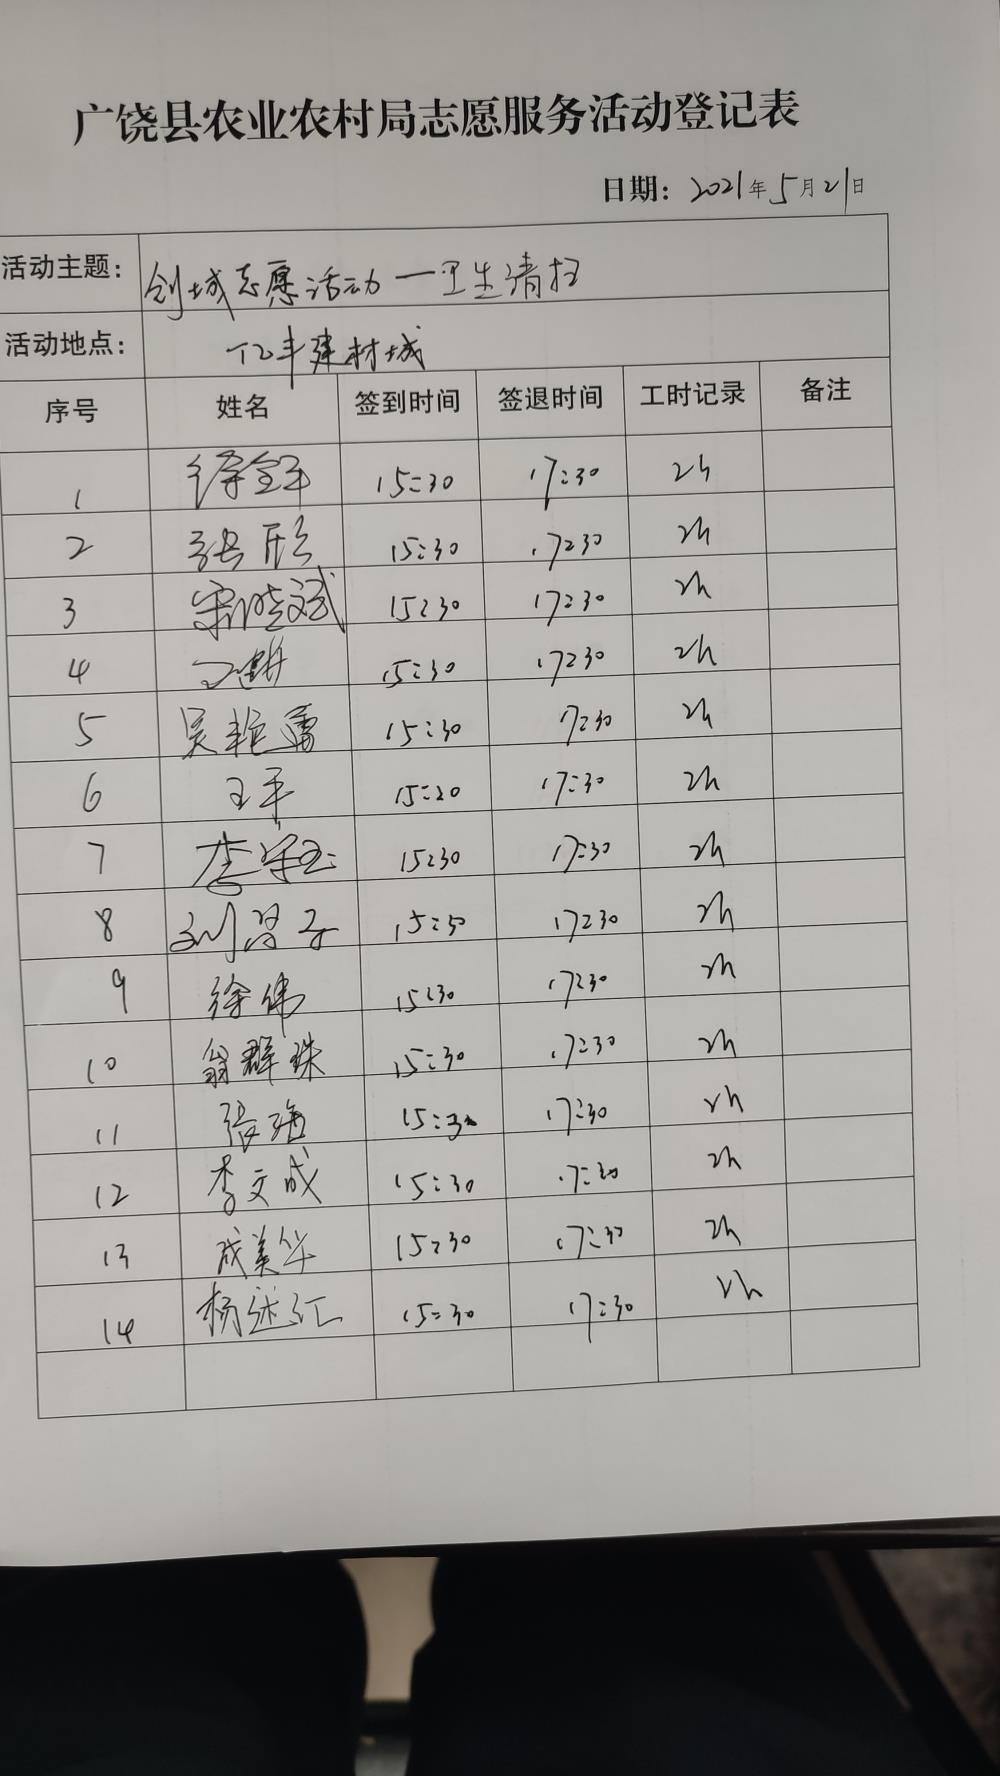 广饶县农业农村局志愿服务活动登记表
日期: 2021年5月21日
活动主题: 创城志愿活动一卫生清扫
活动地点: 亿丰建材城
序号 姓名 签到时间 签退时间 工时记录 备注
1 15:30 17:30 2h
2 张彤 15:30 17:30 2h
3 宋晓斌 15:30 17:30 2h
4 15:30 17:30 2h
5 吴艳雷 15:30 17:30 2h
6 王平 15:20 17:30 2h
7 李 15:30 17:30 2h
8 刘 子 15:30 17:30 2h
9 徐伟 15:30 17:30 2h
10 翁群珠 15:30 17:30 2h
11 张海 15:30 17:30 2h
12 李文成 15:30 17:30 2h
13 成美华 15:30 17:30 2h
14 杨述汇 15:30 17:30 2h